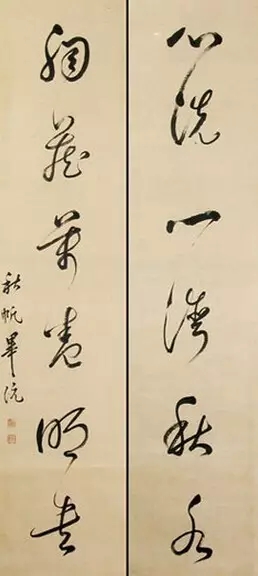 心洗一清秋水
胸藏萬卷明書
秋帆畢沅